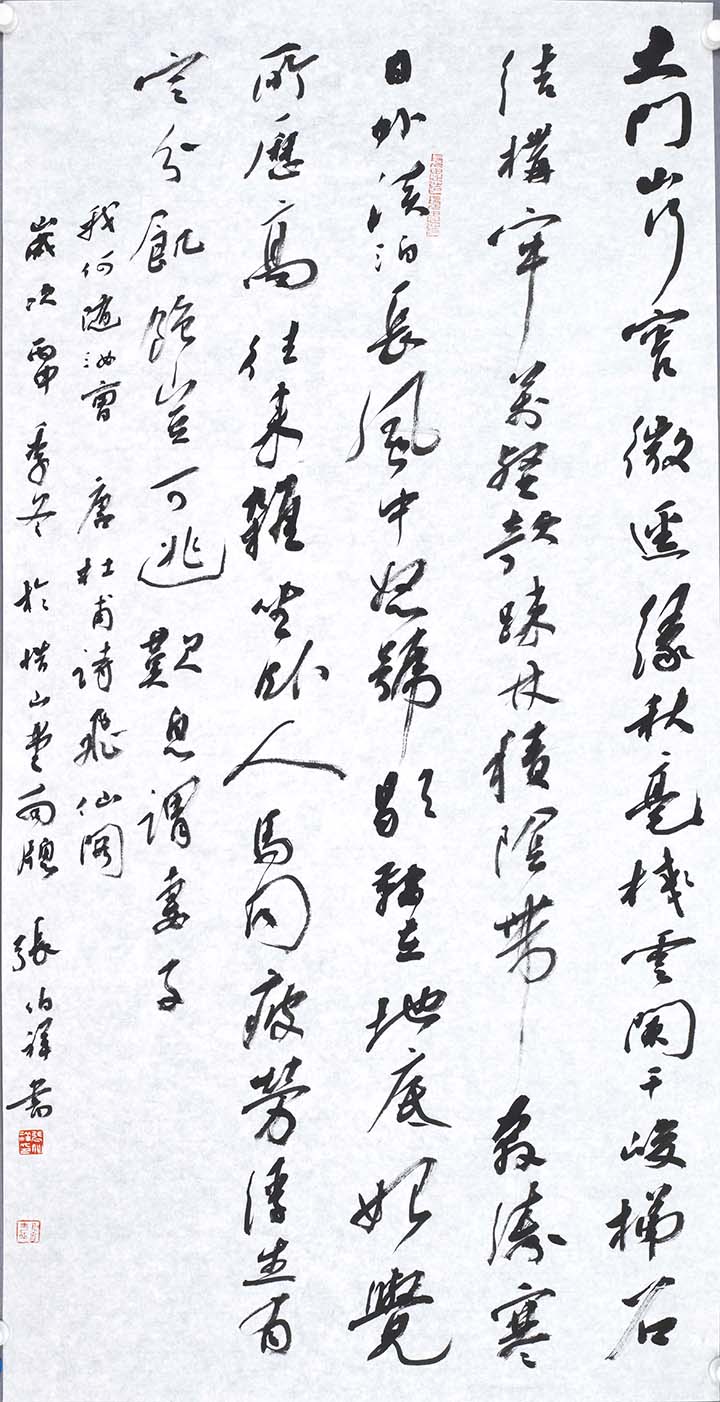 土門山行窄微徑緣秋毫棧雲闌干峻梯石
結構牢萬壑欹疎林積陰帶奔濤寒
日外淡泊長風中怒號歇鞍在地底始覺
所歷高往來雜坐臥人馬同疲勞浮生有
定分飢飽豈可逃歎息謂妻子
我何隨汝曹 唐杜甫詩飛仙閣
歲次丙申季冬於山堂 張伯祥書